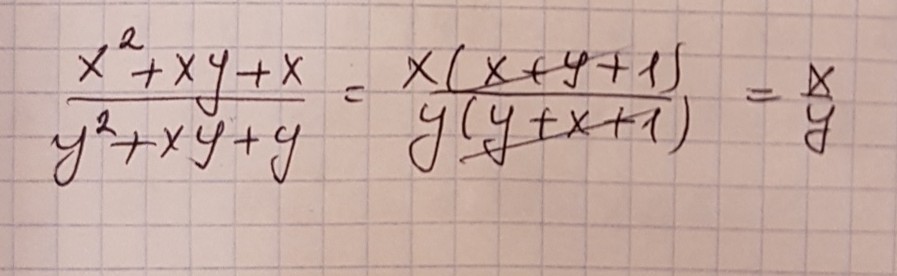 x²+xy+x / y²+xy+y = x(x+y+1) / y(y+x+1) = x / y